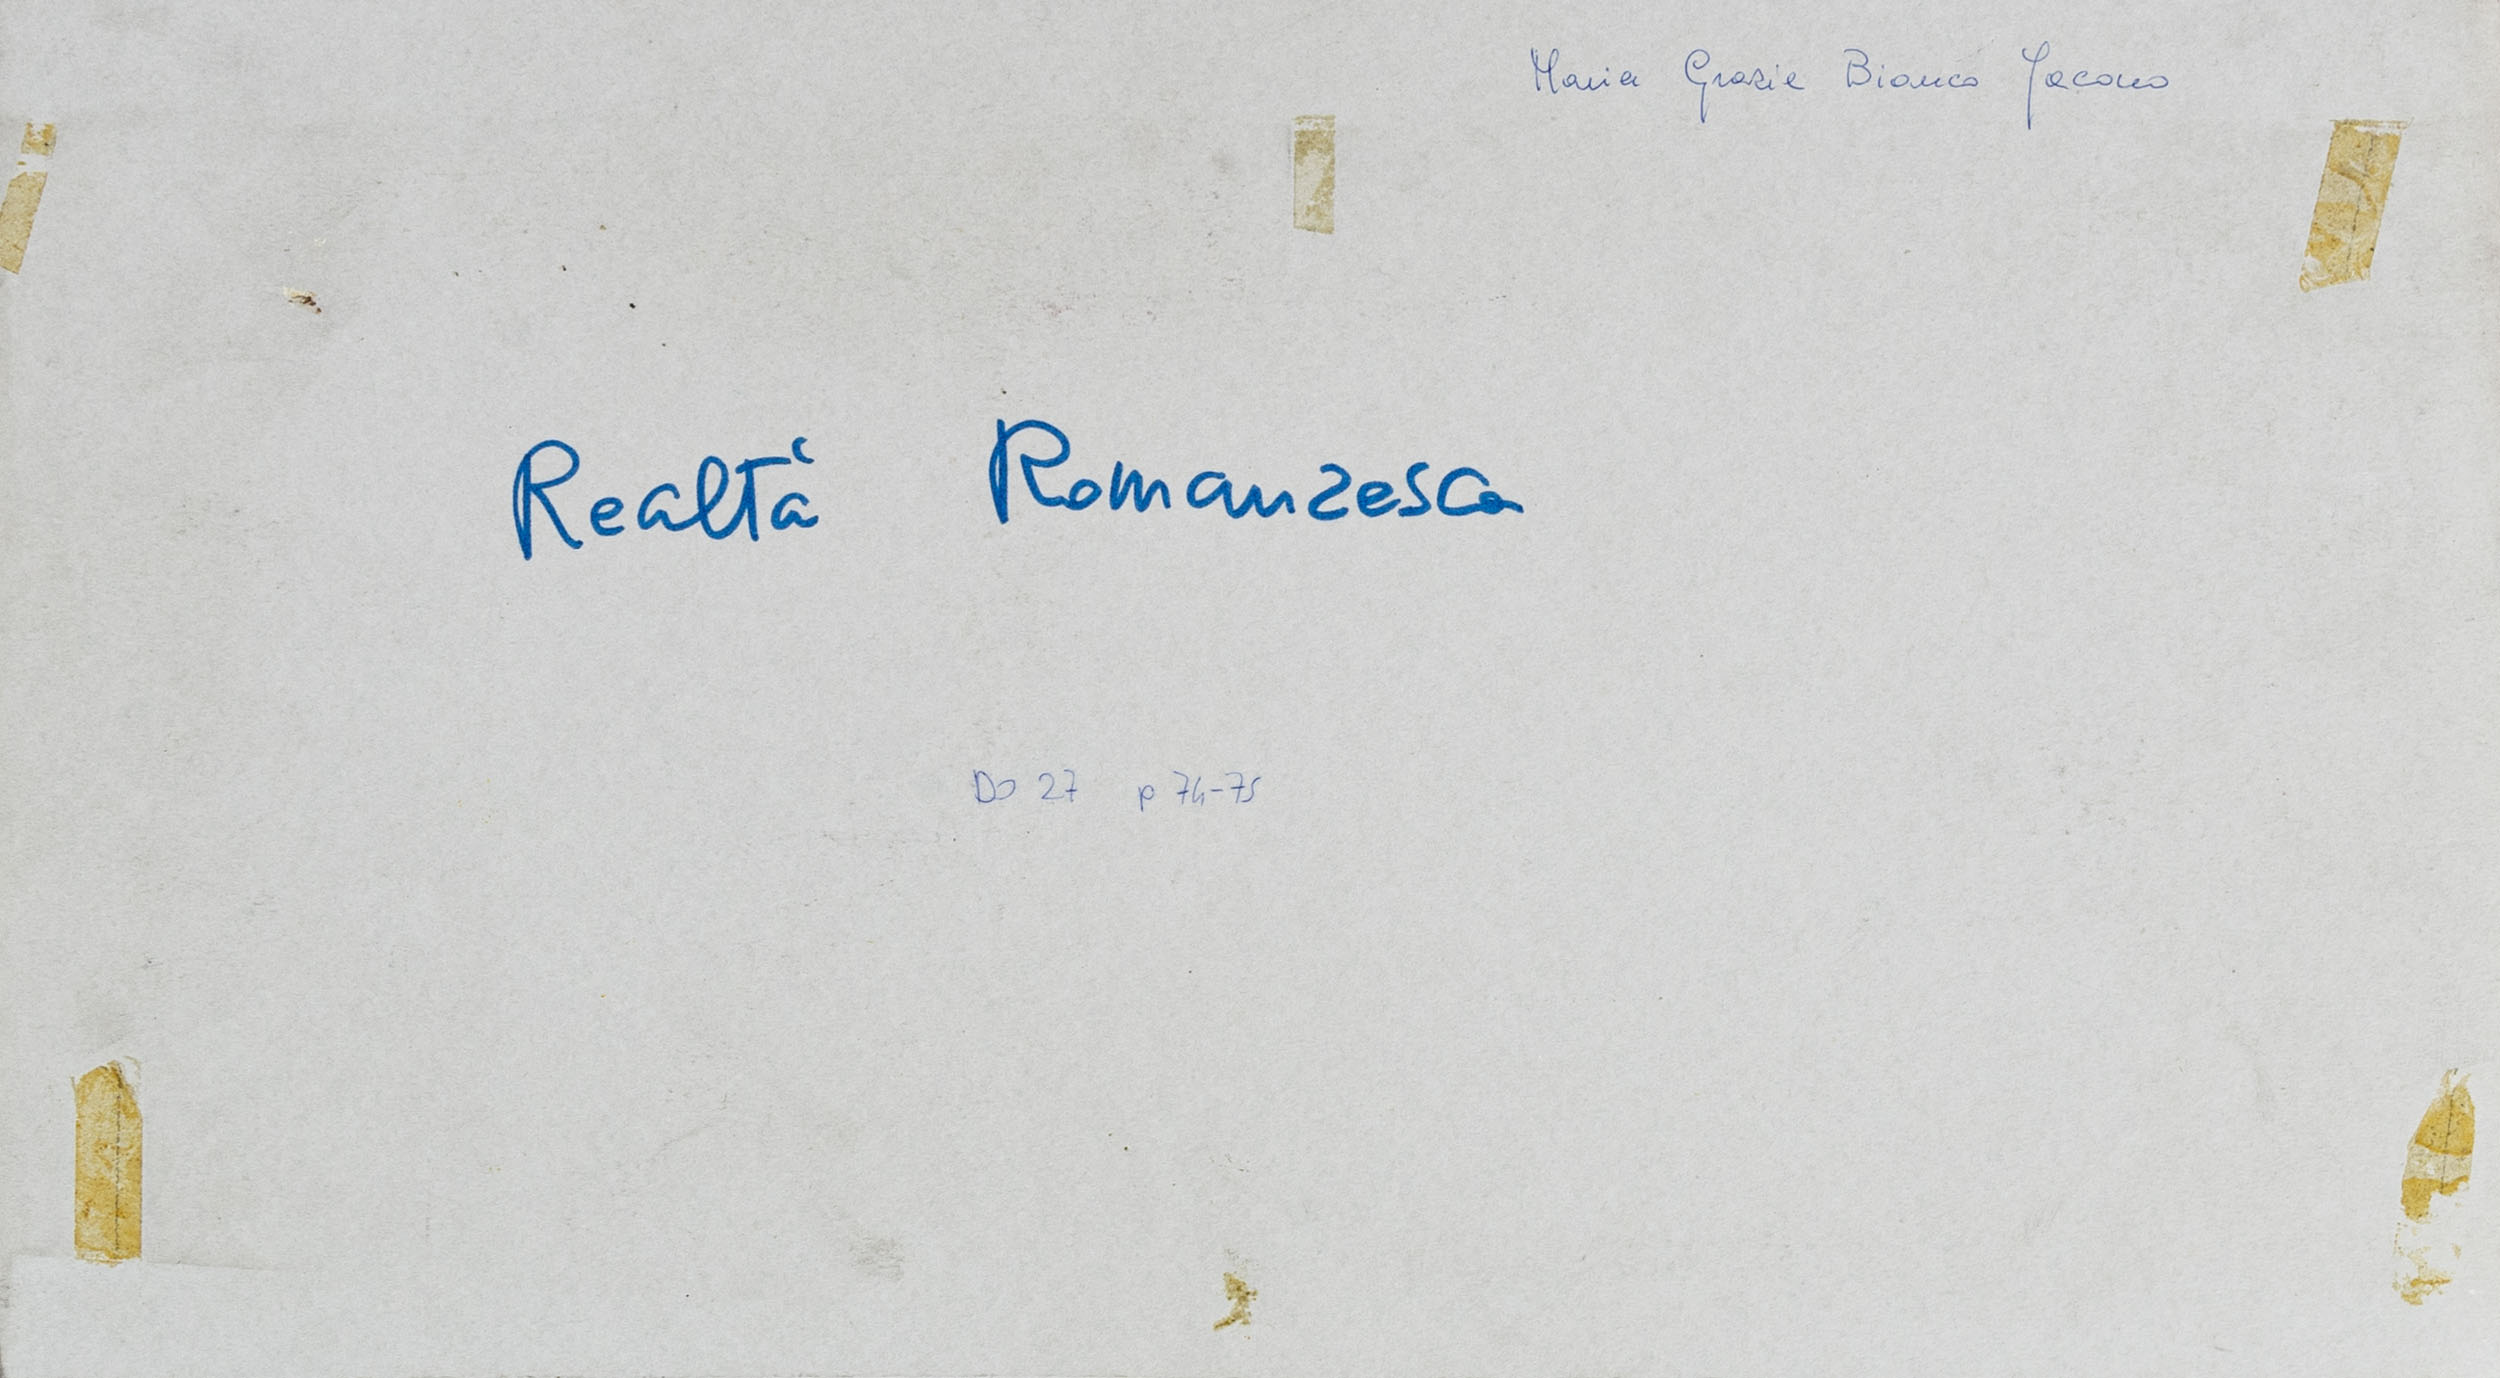 Maria Grazie Bianco Jacono
Realtà Romanzesca
DO 27 p 74-75